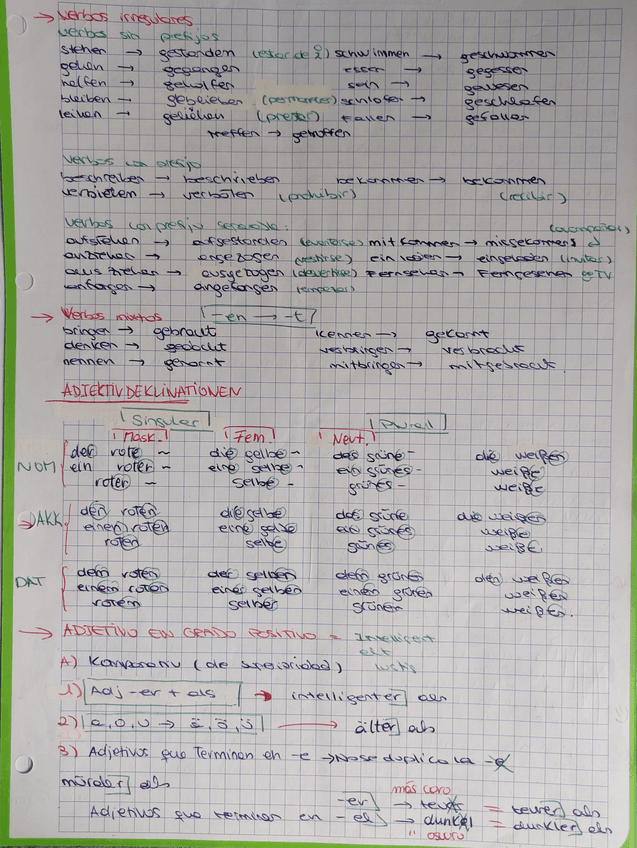 → Verbos irregulares
Verbos sin prefijos
stehen → gestanden (estar de) schwimmen → geschwommen
gehen → gegangen essen → gegessen
helfen → geholfen sein → gewesen
bleiben → geblieben (permanecer) schlafen → geschlafen
leihen → geliehen (prestar) fallen → gefallen
treffen → getroffen
Verbos con prefijo
beschreiben → beschrieben bekommen → bekommen
verbieten → verboten (prohibir) (recibir)
Verbos con prefijo separable: (acompañar)
aufstehen → aufgestanden (levantarse) mitkommen → mitgekommen
anziehen → angezogen (vestirse) einladen → eingeladen (invitar)
ausziehen → ausgezogen (desvestirse) Fernsehen → Ferngesehen TV
anfangen → angefangen (empezar)
→ Verbos mixtos -en → -t
bringen → gebracht kennen → gekannt
denken → gedacht verbringen → verbracht
nennen → genannt mitbringen → mitgebracht.
ADJEKTIVDEKLINATIONEN
Singular Plural
Mask. Fem. Neut.
NOM der rote ~ die gelbe ~ das grüne ~ die weißen
ein roter ~ eine gelbe ~ ein grünes ~ weiße
roter ~ gelbe ~ grünes ~ weiße
→ AKK den roten die gelbe das grüne die weißen
einen roten eine gelbe ein grünes weiße
roten gelbe grünes weiße
DAT dem roten der gelben dem grünen den weißen
einem roten einer gelben einem grünen weißen
rotem gelber grünem weißen.
→ ADJETIVO EN GRADO POSITIVO = Intelligent
alt
lustig
A) Komparativ (de superioridad)
1) Adj -er + als → intelligenter als
2) a, o, u → ä, ö, ü → älter als
3) Adjetivos que terminan en -e → No se duplica la -e
müder als
más caro
Adjetivos que terminan en -er → teuer = teurer als
-el → dunkel = dunkler als
" oscuro